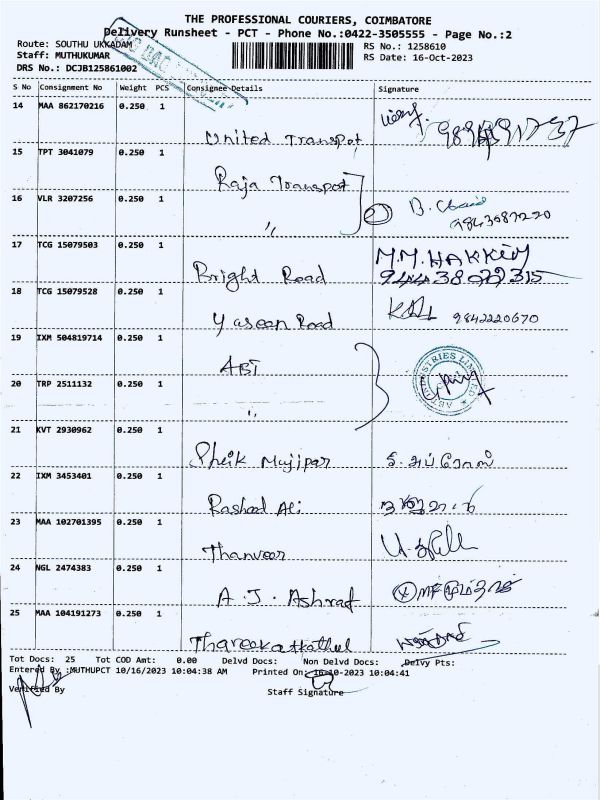 THE PROFESSIONAL COURIERS, COIMBATORE
Delivery Runsheet - PCT - Phone No.:0422-3505555 - Page No.:2
Route: SOUTHU UKKADAM
RS No.: 1258610
Staff: MUTHUKUMAR
RS Date: 16-Oct-2023
DRS No.: DCJB125861002
S No Consignment No Weight PCS Consignee Details Signature
14 MAA 862170216 0.250 1 United Transpot
15 TPT 3041079 0.250 1 Raja Transpot
16 VLR 3207256 0.250 1 〃 B.
17 TCG 15079503 0.250 1 Bright Road M.M.HAKKIM
9443802315
18 TCG 15079528 0.250 1 Yaseen Road 9842220670
19 IXM 504819714 0.250 1 ABT
20 TRP 2511132 0.250 1 〃
21 KVT 2930962 0.250 1 Sheik Mujipar
22 IXM 3453401 0.250 1 Rasheed Ali
23 MAA 102701395 0.250 1 Thanveer
24 NGL 2474383 0.250 1 A. J. Ashraf
25 MAA 104191273 0.250 1 Thareekathathul
Tot Docs: 25 Tot COD Amt: 0.00 Delvd Docs: Non Delvd Docs: Delvy Pts:
Entered By :MUTHUPCT 10/16/2023 10:04:38 AM Printed On: 16-10-2023 10:04:41
Verified By
Staff Signature